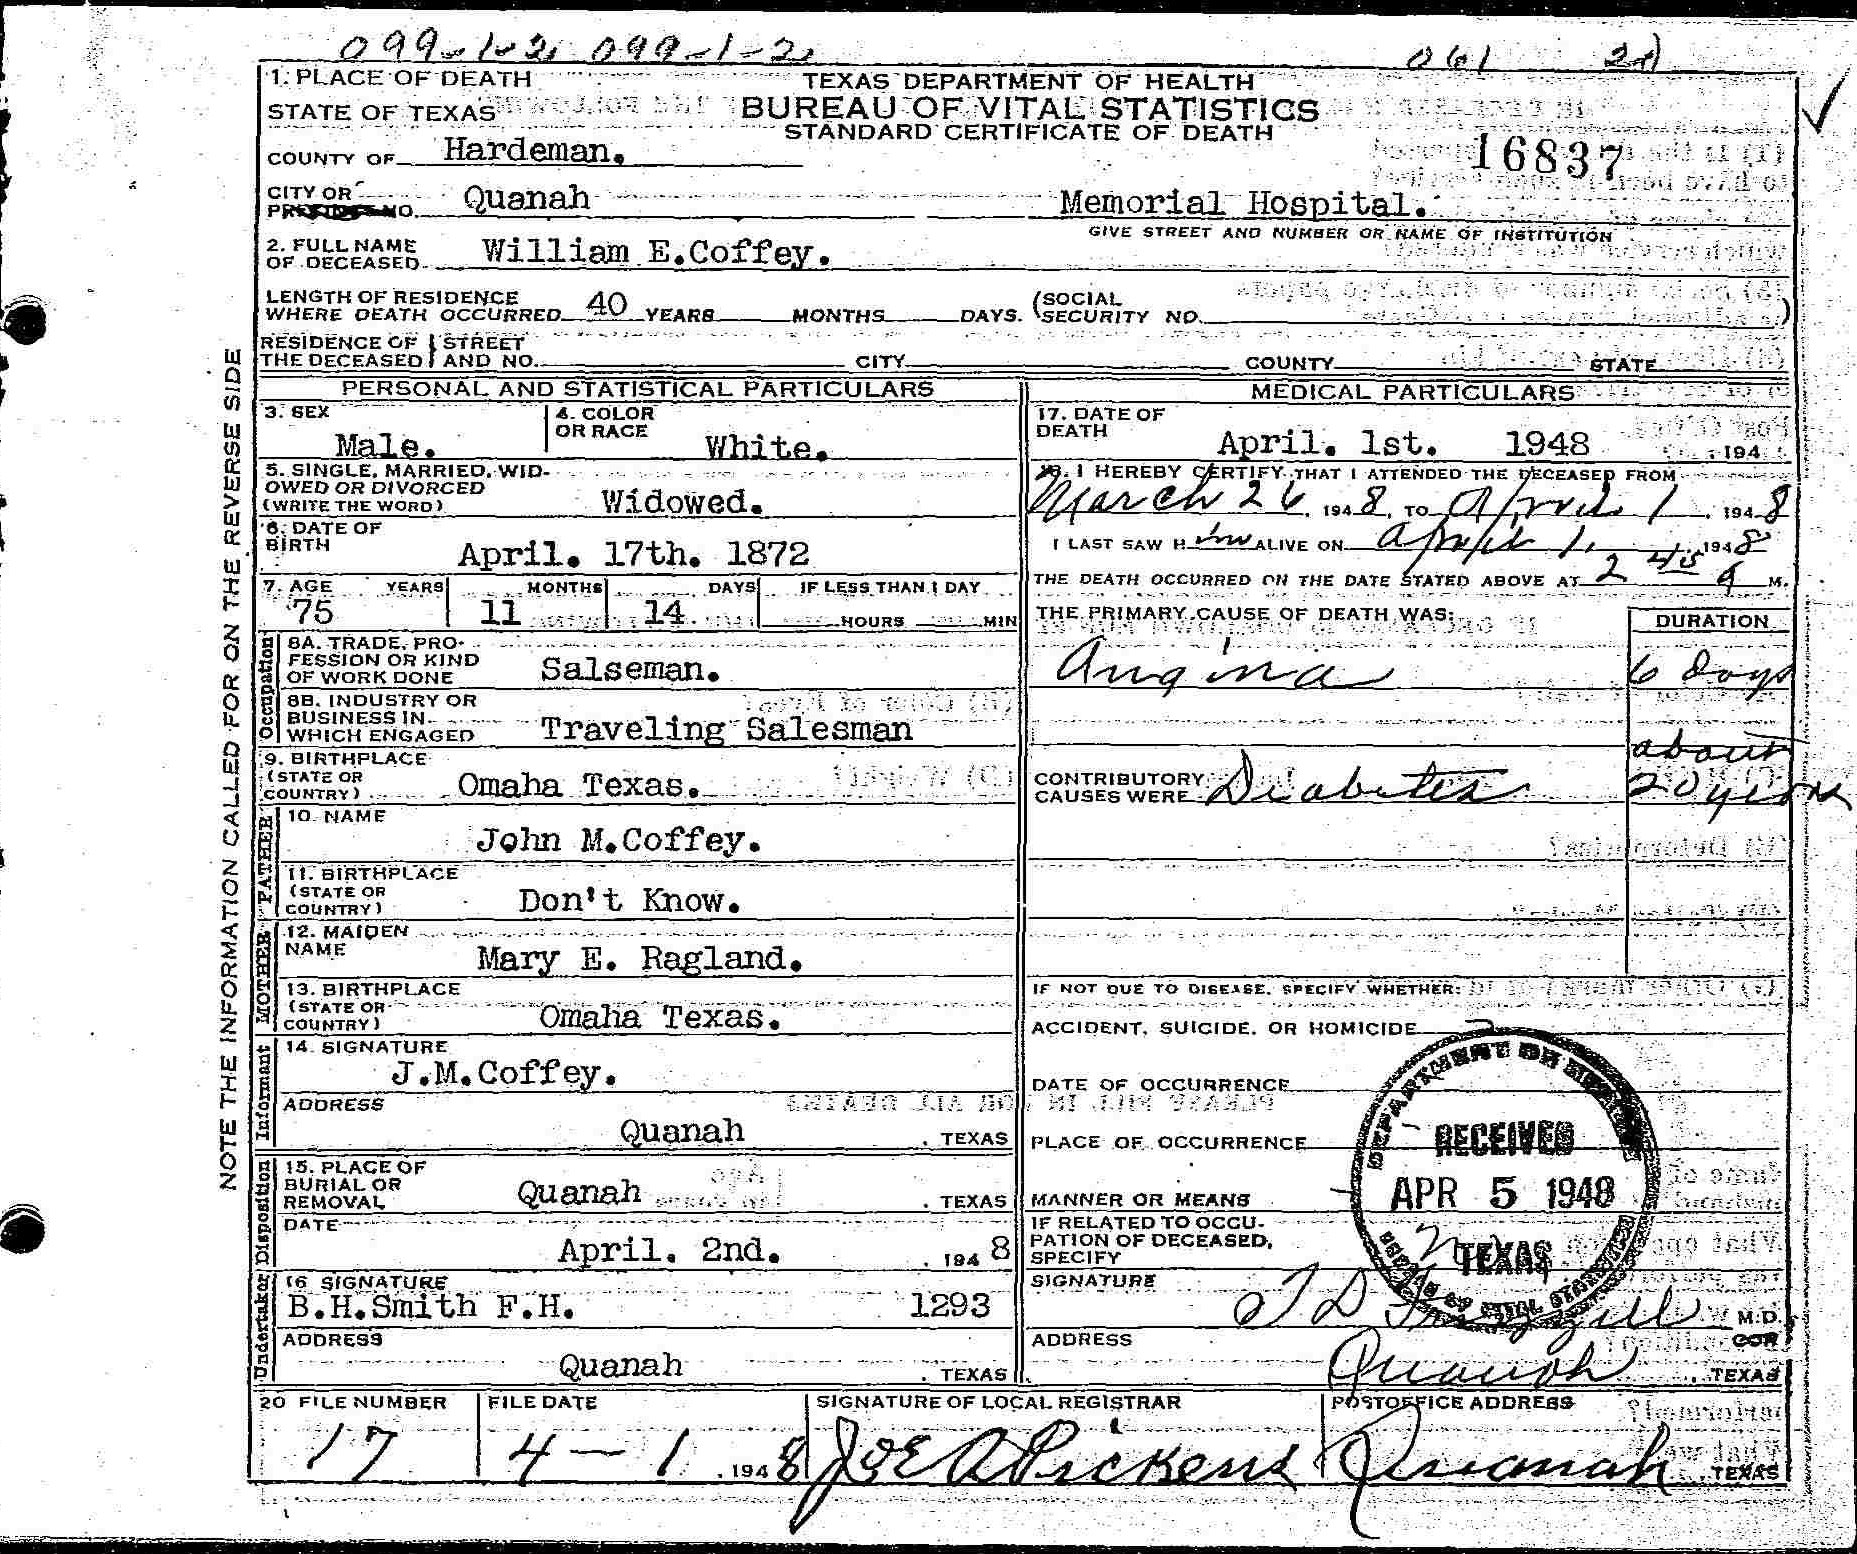 099-1-2 099-1-2 061 2
1. PLACE OF DEATH
STATE OF TEXAS
TEXAS DEPARTMENT OF HEALTH
BUREAU OF VITAL STATISTICS
STANDARD CERTIFICATE OF DEATH
COUNTY OF Hardeman.
16837
CITY OR NO. Quanah Memorial Hospital.
GIVE STREET AND NUMBER OR NAME OF INSTITUTION
2. FULL NAME
OF DECEASED William E.Coffey.
LENGTH OF RESIDENCE
WHERE DEATH OCCURRED 40 YEARS MONTHS DAYS. (SOCIAL SECURITY NO. )
RESIDENCE OF THE DECEASED STREET AND NO. CITY COUNTY STATE
NOTE THE INFORMATION CALLED FOR ON THE REVERSE SIDE
PERSONAL AND STATISTICAL PARTICULARS
3. SEX Male.
4. COLOR OR RACE White.
5. SINGLE, MARRIED, WID-
OWED OR DIVORCED
(WRITE THE WORD) Widowed.
6. DATE OF
BIRTH April. 17th. 1872
7. AGE YEARS MONTHS DAYS IF LESS THAN 1 DAY
75 11 14. HOURS MIN
Occupation
8A. TRADE, PRO-
FESSION OR KIND
OF WORK DONE Salseman.
8B. INDUSTRY OR
BUSINESS IN
WHICH ENGAGED Traveling Salesman
9. BIRTHPLACE
(STATE OR
COUNTRY) Omaha Texas.
FATHER
10. NAME
John M.Coffey.
11. BIRTHPLACE
(STATE OR
COUNTRY) Don't Know.
MOTHER
12. MAIDEN
NAME Mary E. Ragland.
13. BIRTHPLACE
(STATE OR
COUNTRY) Omaha Texas.
Informant
14. SIGNATURE
J.M.Coffey.
ADDRESS
Quanah , TEXAS
Disposition
15. PLACE OF
BURIAL OR
REMOVAL Quanah , TEXAS
DATE
April. 2nd. , 194 8
Undertaker
16 SIGNATURE
B.H.Smith F.H. 1293
ADDRESS
Quanah , TEXAS
MEDICAL PARTICULARS
17. DATE OF
DEATH April. 1st. 1948 , 194
18. I HEREBY CERTIFY THAT I ATTENDED THE DECEASED FROM
March 26, 1948, TO April 1, 1948
I LAST SAW H im ALIVE ON April 1, 1948
THE DEATH OCCURRED ON THE DATE STATED ABOVE AT 2 45 a M.
THE PRIMARY CAUSE OF DEATH WAS: DURATION
Angina 6 Days
about
CONTRIBUTORY
CAUSES WERE Diabetes 20 years
IF NOT DUE TO DISEASE, SPECIFY WHETHER:
ACCIDENT, SUICIDE, OR HOMICIDE
DATE OF OCCURRENCE
PLACE OF OCCURRENCE
MANNER OR MEANS
IF RELATED TO OCCU-
PATION OF DECEASED,
SPECIFY
DEPARTMENT OF HEALTH
RECEIVED
APR 5 1948
TEXAS
BUREAU OF VITAL STATISTICS
SIGNATURE M.D.
ADDRESS
Quanah , TEXAS
20 FILE NUMBER FILE DATE SIGNATURE OF LOCAL REGISTRAR POSTOFFICE ADDRESS
17 4-1, 1948 Joe A Pickens Quanah TEXAS